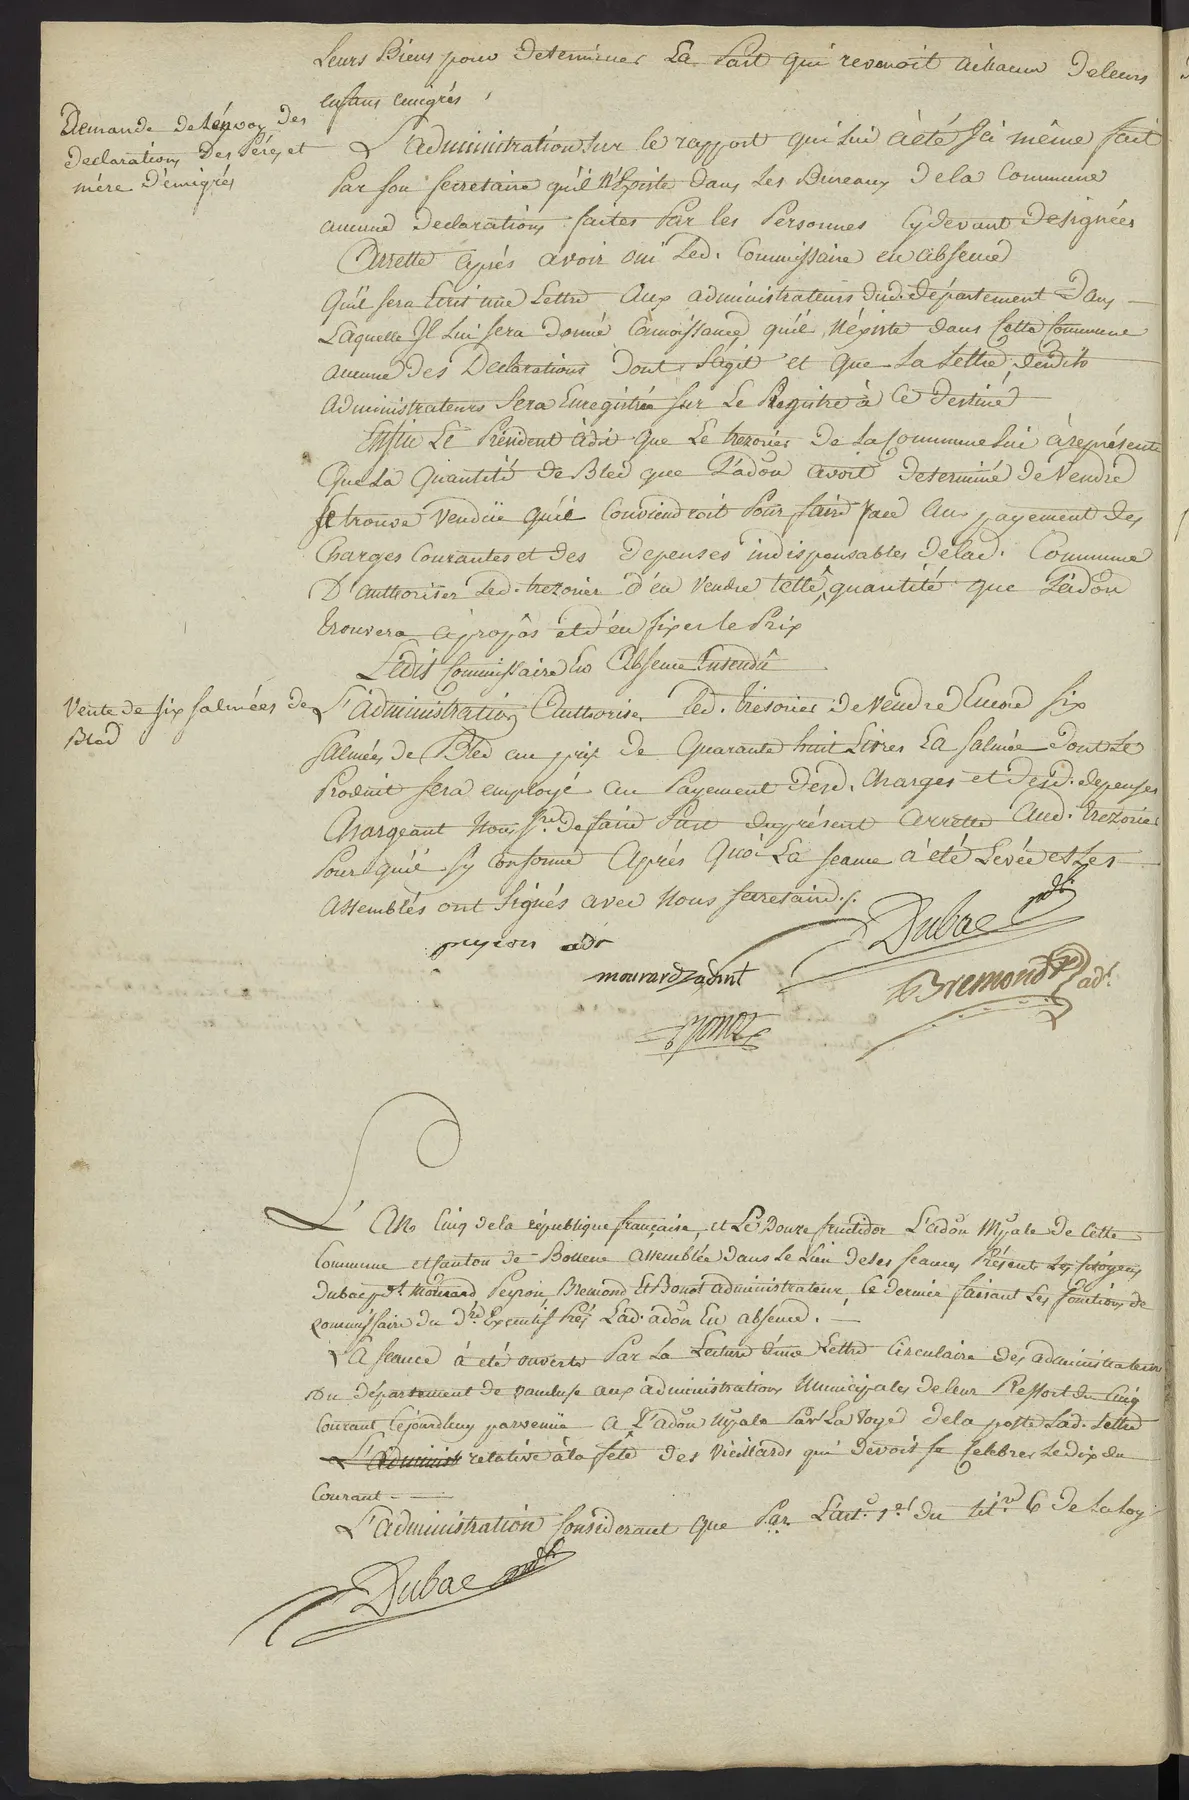 Leurs Biens pour determiner La Part qui revenoit achacun deleurs
enfans emigrés ,
Demande de Lenvoy des
declarations Des Péres et
mére D'émigrés
L'administration sur le rapport qui lui àété Ici même fait
Par son secretaire quil N'Existe dans les Bureaux dela Commune
aucune declarations faites Par les Personnes Cydevant designées
Arrette après avoir oui Led. Commissaire en absence
Quil sera Ecrit une Lettre aux administrateurs dud. département dans
Laquelle Il Lui sera donné Connoissance quil N'éxiste dans Cette Commune
aucune des Declarations dont sagit et que La Lettre desdits
administrateurs sera Enregistrée sur Le Registre à Ce destiné
Enfin Le Président àdit que Le trezorier de la Commune Lui àreprésenté
Que La Quantité de Bled que L'adon avoit determiné de Vendre
se trouve Vendüe quil Conviendroit Pour faire face Aux payement des
Charges Courantes et des depenses indispensables delad. Commune
D'authoriser Led. trezorier d'en vendre telle quantité que L'adon
trouvera apropôs et d'en fixer le Prix
Ledit Commissaire En Absence Entendû
Vente de six salmées de
Bled
L'administration Authorise Led. trésorier de Vendre Encore six
salmées de Bled au prix de Quarante huit Livres La salmée dont Le
Produit sera employé au Payement desd. Charges et desd. depenses
Chargeant Nous Sre. de faire Part duprésent arretté Aud. trezorier
Pour quil sy Conforme Après Quoi La seance à été Levée et Les
Assemblés ont signés avec Nous secretaire ./.
Dubac pdt
peyron adt
mourard adint
Bremond adt.
Bonot
L'An Cinq dela république française, et Le Douze fructidor L'adon Mpale de Cette
Commune et Canton de Bollene assemblée dans Le Lieu deses seances Présent Les Citoyens
Dubac pdt. Mourard Peyron Bremond Et Bonot administrateurs, Ce dernier faisant Les fonctions de
Commissaire du dre. Executif Prés Lad. adon En absence. —
La seance à été ouverte Par La Lecture d'une Lettre Circulaire des administrateurs
Du département de vaucluse aux administrations Municipales deleur Ressort du Cinq
Courant Cejourdhuy parvenüe a L'adon Mpale Par La Voye dela poste Lad. Lettre
L'administ relative à la fête des Vieillards qui devoit se Celebrer Le dix du
Courant —
L'administration Considerant que Par L'art. 1er. du titre 6 de La Loy
Dubac pdt